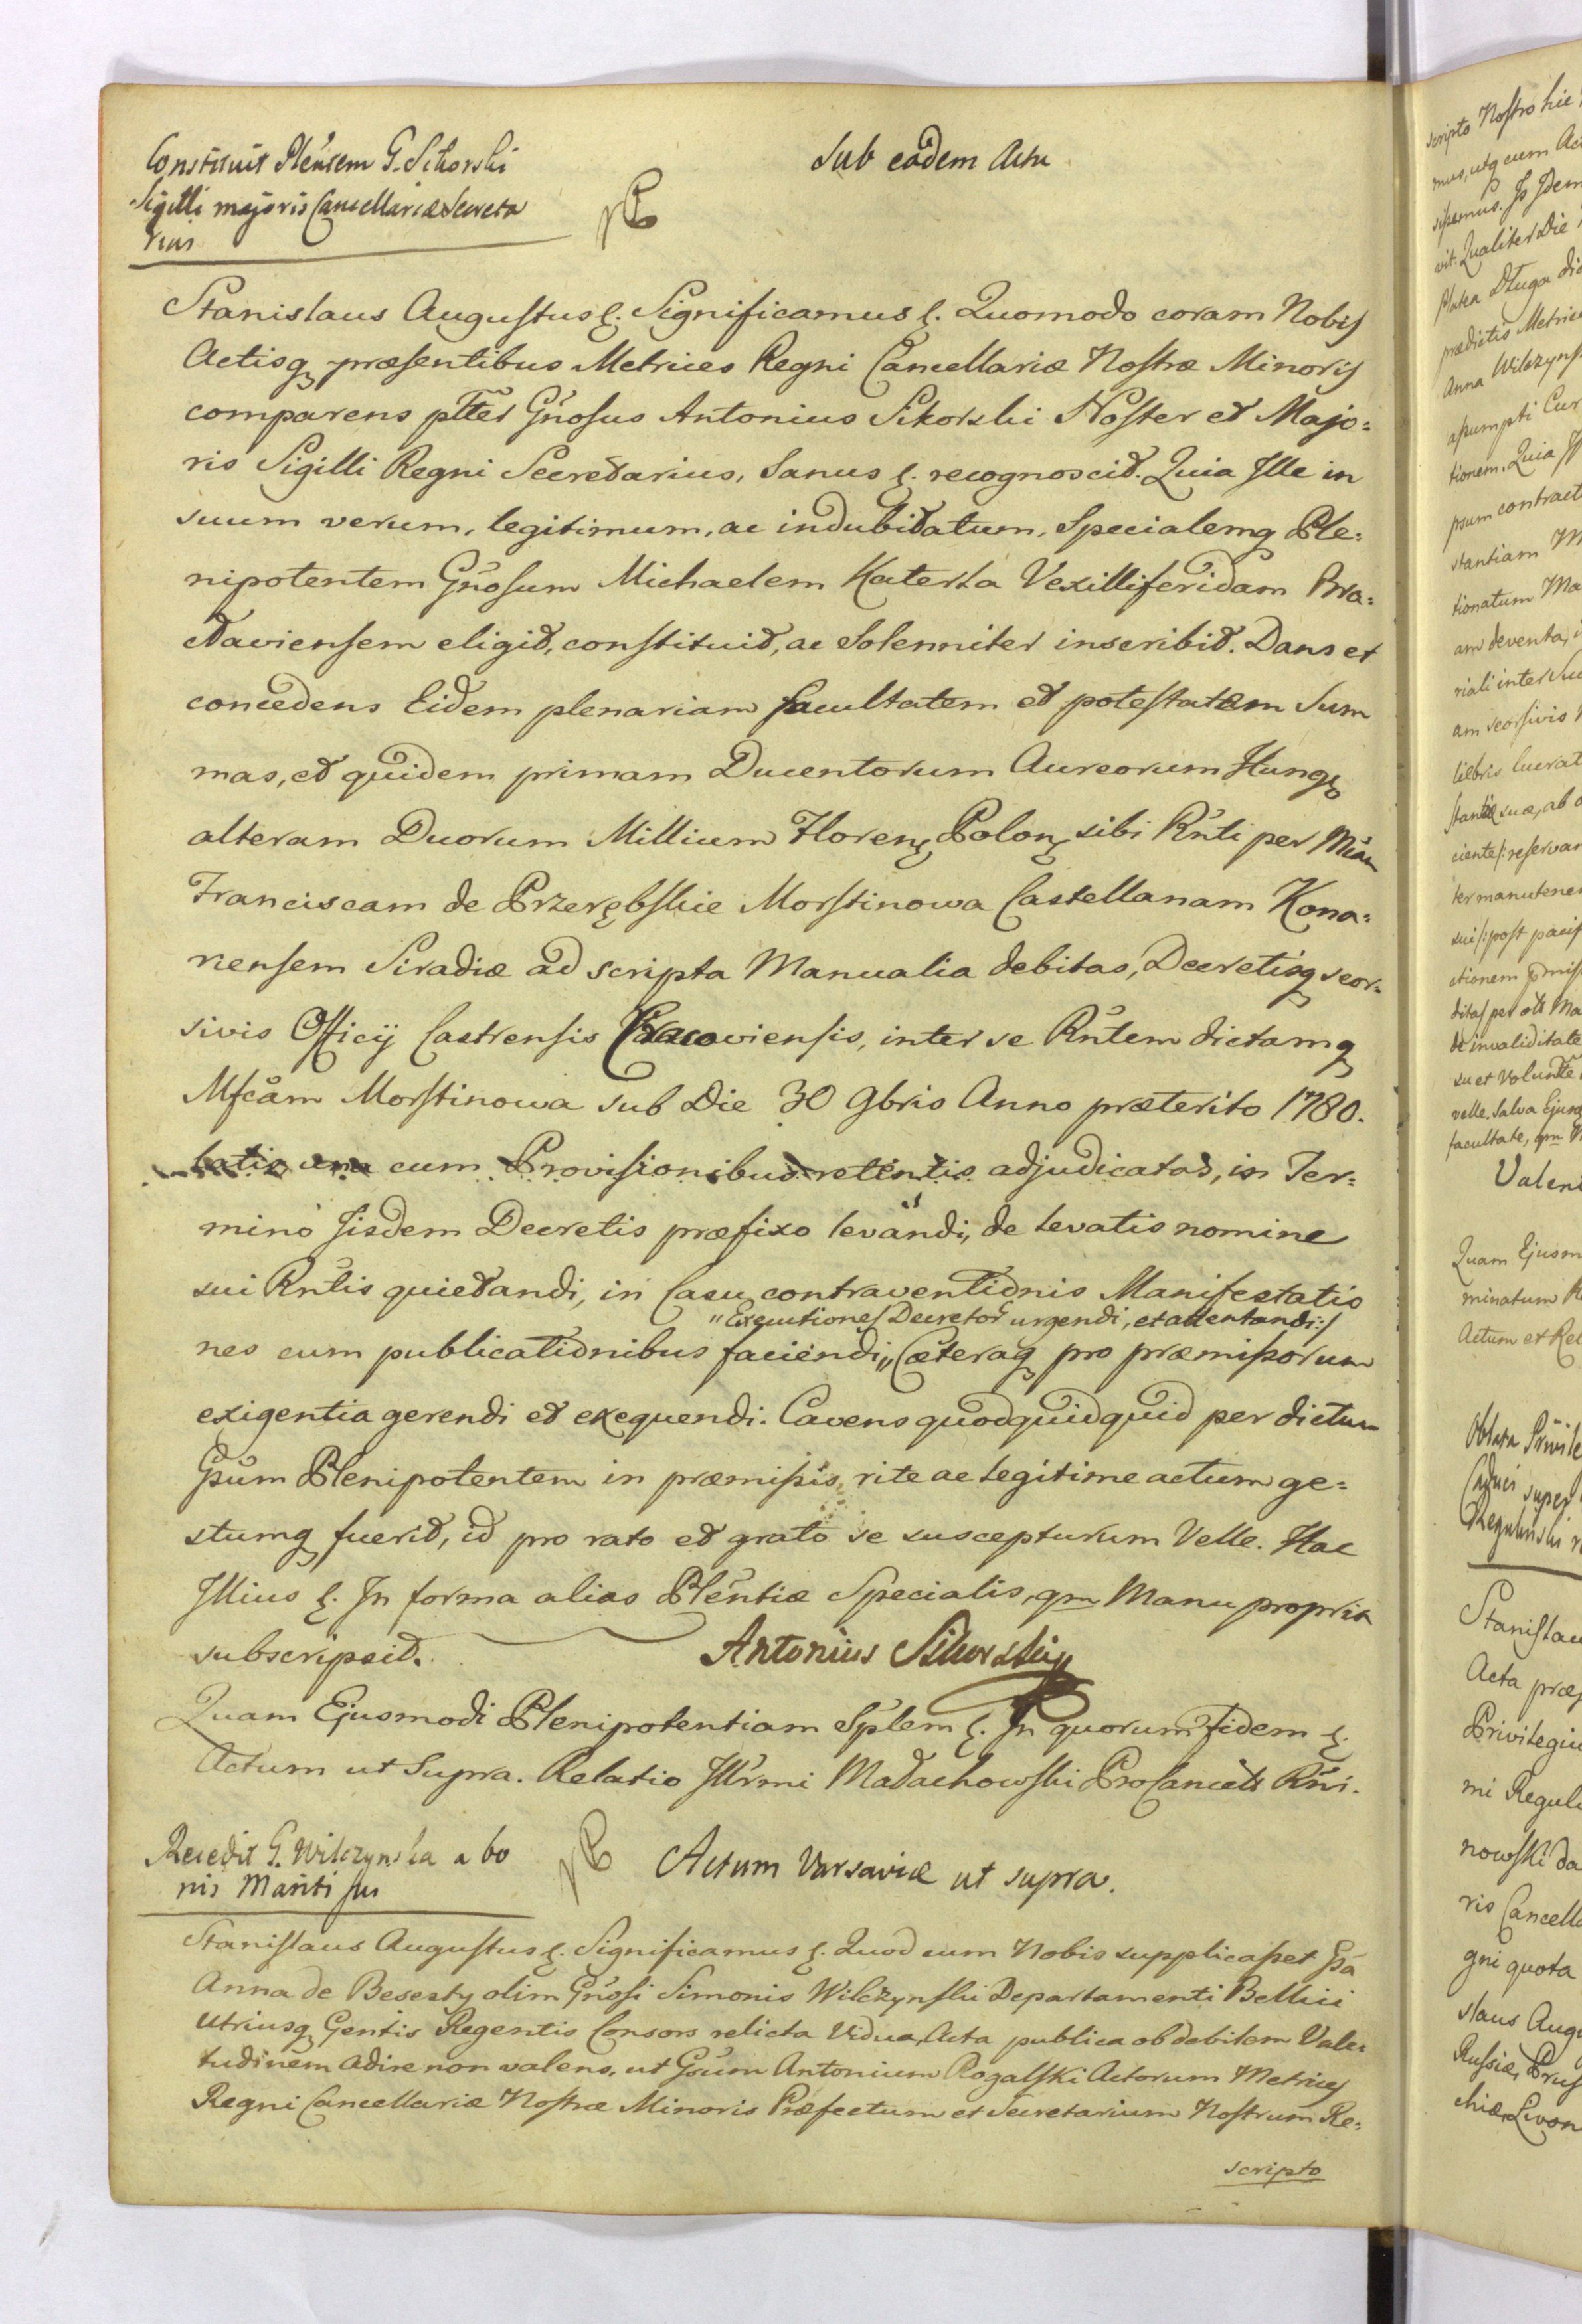 Constituit Plentem G. Sikorski
Sigilli majoris Cancellariæ Secreta
rius
Sub eadem Actu
Stanislaus Augustus &. Significamus &. Quomodo coram Nobis
Actisq præsentibus Metrices Regni Cancellariæ Nostræ Minoris
comparens pltter Gnosus Antonius Sikorski Noster et Majo:
ris Sigilli Regni Secretarius, Sanus &. recognoscit. Quia Ille in
suum verum, legitimum, ac indubitatum, Specialemq Ple:
nipotentem Gnosum Michaelem Katerla Vexilliferidam Bra:
claviensem eligit, constituit, ac Solenniter inscribit. Dans et
concedens Eidem plenariam facultatem et potestatem Sum
mas, et quidem primam Ducentorum Aureorum Hung
alteram Duorum Millium Floren Polon sibi Rnti per Mcam
Franciscam de Przerębskie Morstinowa Castellanam Kona:
riensem Siradiæ ad scripta Manualia debitas, Decretisq seor:
sivis Officij Castrensis Cracoviensis, inter se Rntem dictamq
Mfcam Morstinowa sub Die 30 9bris Anno præterito 1780.
latis una cum Provisionibus retentis adjudicatas, in Ter:
mino Iisdem Decretis præfixo levandi, de levatis nomine
sui Rntis quietandi, in Casu contraventionis Manifestatio
"Executiones Decretor urgendi, et attentandi:/
nes cum publicationibus faciendi,, Cæteraq pro præmissorum
exigentia gerendi et exequendi. Cavens quod quidquid per dictum
Gsum Plenipotentem in præmissis, rite ac legitime actum ge:
stumq fuerit, id pro rato et grato se suscepturum Velle. Hac
Illius &. In forma alias Plentiæ Specialis, qm Manu propria
subscripsit. Antonius Sikorski
Quam Ejusmodi Plenipotentiam Splem &. In quorum fidem &.
Actum ut Supra. Relatio Illrmi Małachowski ProCancell Rni.
Recedit G. Wilczynska a bo
nis Mariti sui
Actum Varsaviæ ut supra.
Stanislaus Augustus &. Significamus &. Quod cum Nobis supplicasset Gsa
Anna de Besesty olim Gnosi Simonis Wilczynski Departamenti Bellici
Utriusq Gentis Regentis Consors relicta Vidua, Acta publica ob debilem Vale:
tudinem adire non valens, ut Gsum Antonium Rogalski Actorum Metrices
Regni Cancellariæ Nostræ Minoris Præfectum et Secretarium Nostrum Re:
scripto
scripto Nostro hic
mus, utq cum Ac
vit. Qualiter Die
Platea Długa
prædictis Metric
Anna Wilczyns
assumpti Cur
tionem. Quia
psum contract
stantiam
tionatum Ma
am deventa,
riali inter Su
am seorsivis
liebris lucrat
stantiæ suæ, ab
ciente/: reservar
ter manutene
sui/: post pacif
ctionem
ditas per
de invaliditate
su et Volunte
velle. Salva Ejus
facultate, qm
Valen
Quam Ejusm
minatum
Actum et Rel
Oblata Privile
super
Stanislau
Acta præ
Privilegiu
mi Regul
nowski da
ris Cancella
gni quota
slaus Aug
Russiæ, Prus
chiæ, Livon